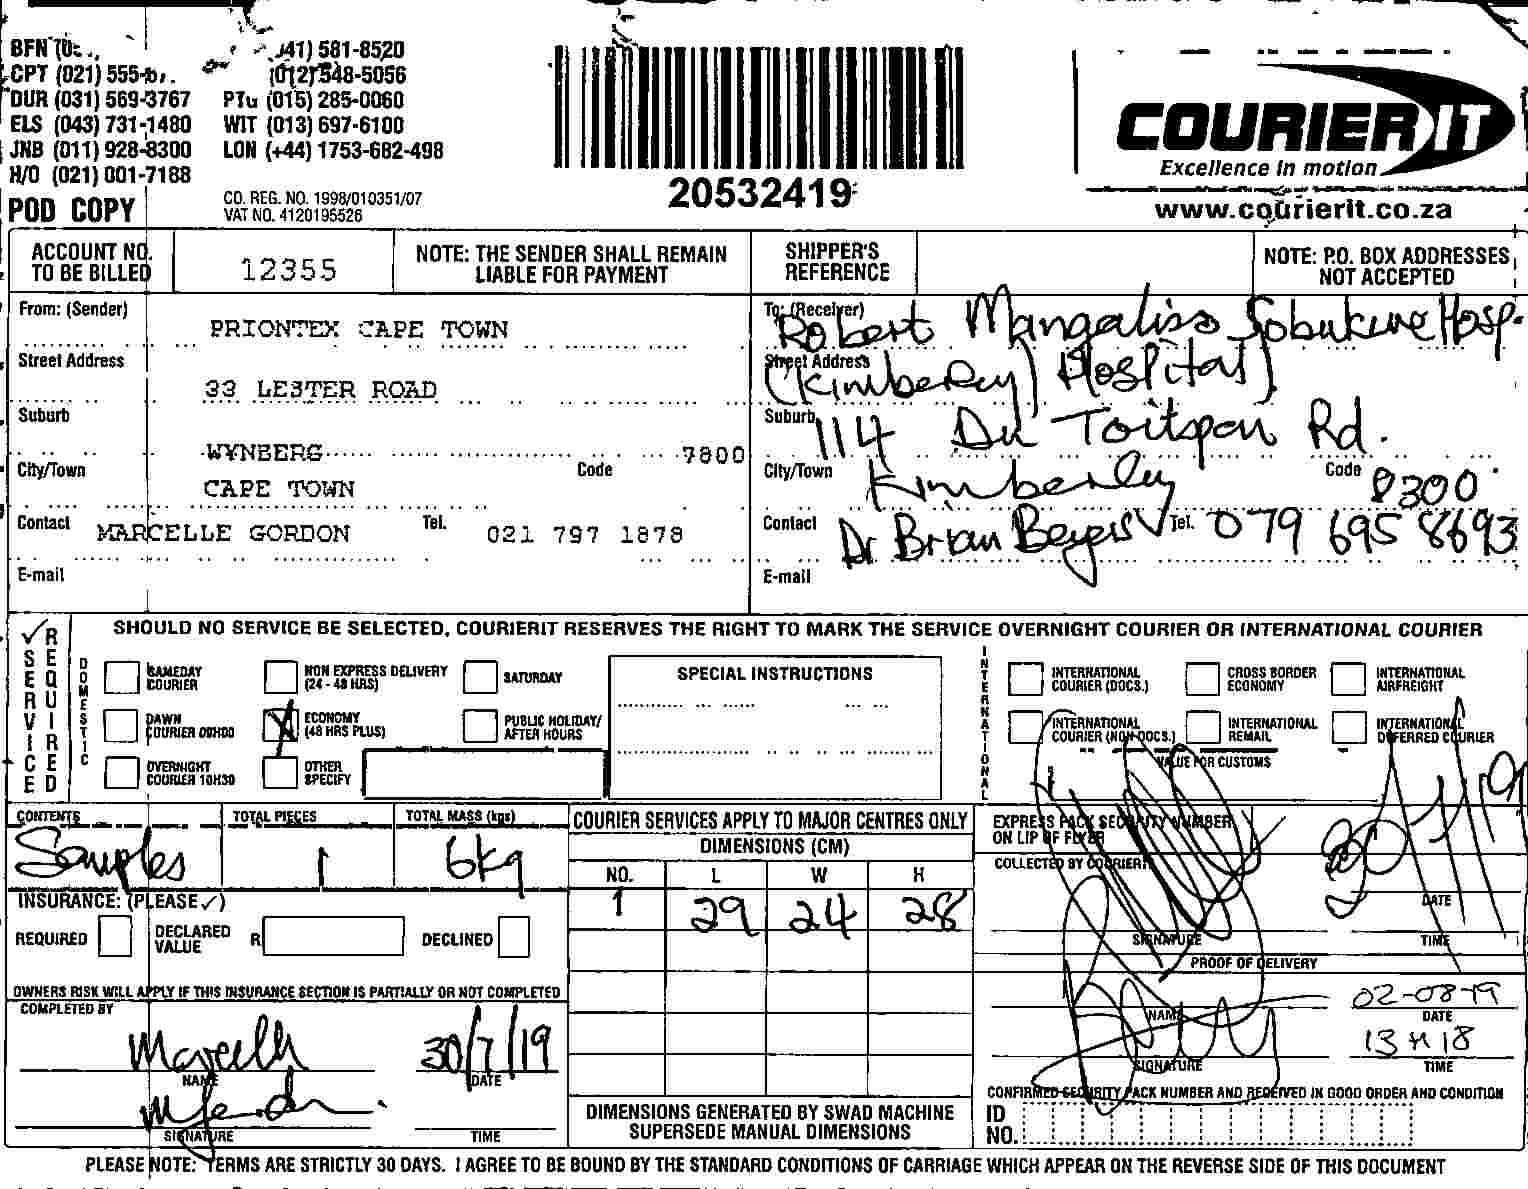 BFN
41) 581-8520
CPT (021) 555-
(012) 548-5056
DUR (031) 569-3767
(015) 285-0060
ELS (043) 731-1480
WIT (013) 697-6100
JNB (011) 928-8300
LON (+44) 1753-682-498
H/O (021) 001-7188
POD COPY
CO. REG. NO. 1998/010351/07
VAT NO. 4120195526
20532419
COURIER IT
Excellence in motion
www.courierit.co.za
ACCOUNT NO.
TO BE BILLED
12355
NOTE: THE SENDER SHALL REMAIN
LIABLE FOR PAYMENT
SHIPPER'S
REFERENCE
NOTE: P.O. BOX ADDRESSES
NOT ACCEPTED
From: (Sender)
PRIONTEX CAPE TOWN
Street Address
33 LESTER ROAD
Suburb
WYNBERG
7800
City/Town
Code
CAPE TOWN
Contact
MARCELLE GORDON
Tel.
021 797 1878
E-mail
To: (Receiver)
Robert Mangaliso Sobukwe Hosp.
Street Address
(Kimberley Hospital)
Suburb
114 Du Toitspan Rd.
City/Town
Kimberley
Code
8300
Contact
Dr Brian Beyers
Tel.
079 695 8693
E-mail
SERVICE
REQUIRED
SHOULD NO SERVICE BE SELECTED, COURIERIT RESERVES THE RIGHT TO MARK THE SERVICE OVERNIGHT COURIER OR INTERNATIONAL COURIER
DOMESTIC
SAMEDAY
COURIER
NON EXPRESS DELIVERY
(24 - 48 HRS)
SATURDAY
DAWN
COURIER 09H00
ECONOMY
(48 HRS PLUS)
PUBLIC HOLIDAY/
AFTER HOURS
OVERNIGHT
COURIER 10H30
OTHER
SPECIFY
SPECIAL INSTRUCTIONS
INTERNATIONAL
INTERNATIONAL
COURIER (DOCS.)
CROSS BORDER
ECONOMY
INTERNATIONAL
AIRFREIGHT
INTERNATIONAL
COURIER (NON DOCS.)
INTERNATIONAL
REMAIL
INTERNATIONAL
DEFERRED COURIER
VALUE FOR CUSTOMS
CONTENTS
Samples
TOTAL PIECES
1
TOTAL MASS (kgs)
6kg
INSURANCE: (PLEASE ✓)
REQUIRED
DECLARED
VALUE
R
DECLINED
OWNERS RISK WILL APPLY IF THIS INSURANCE SECTION IS PARTIALLY OR NOT COMPLETED
COMPLETED BY
Marcelle
NAME
30/7/19
DATE
SIGNATURE
TIME
COURIER SERVICES APPLY TO MAJOR CENTRES ONLY
DIMENSIONS (CM)
NO. L W H
1 29 24 28
DIMENSIONS GENERATED BY SWAD MACHINE
SUPERSEDE MANUAL DIMENSIONS
EXPRESS PACK SECURITY NUMBER
ON LIP OF FLYER
COLLECTED BY COURIERIT
DATE
SIGNATURE
TIME
PROOF OF DELIVERY
02-08-19
NAME
DATE
13H18
SIGNATURE
TIME
CONFIRMED SECURITY PACK NUMBER AND RECEIVED IN GOOD ORDER AND CONDITION
ID
NO.
PLEASE NOTE: TERMS ARE STRICTLY 30 DAYS. I AGREE TO BE BOUND BY THE STANDARD CONDITIONS OF CARRIAGE WHICH APPEAR ON THE REVERSE SIDE OF THIS DOCUMENT